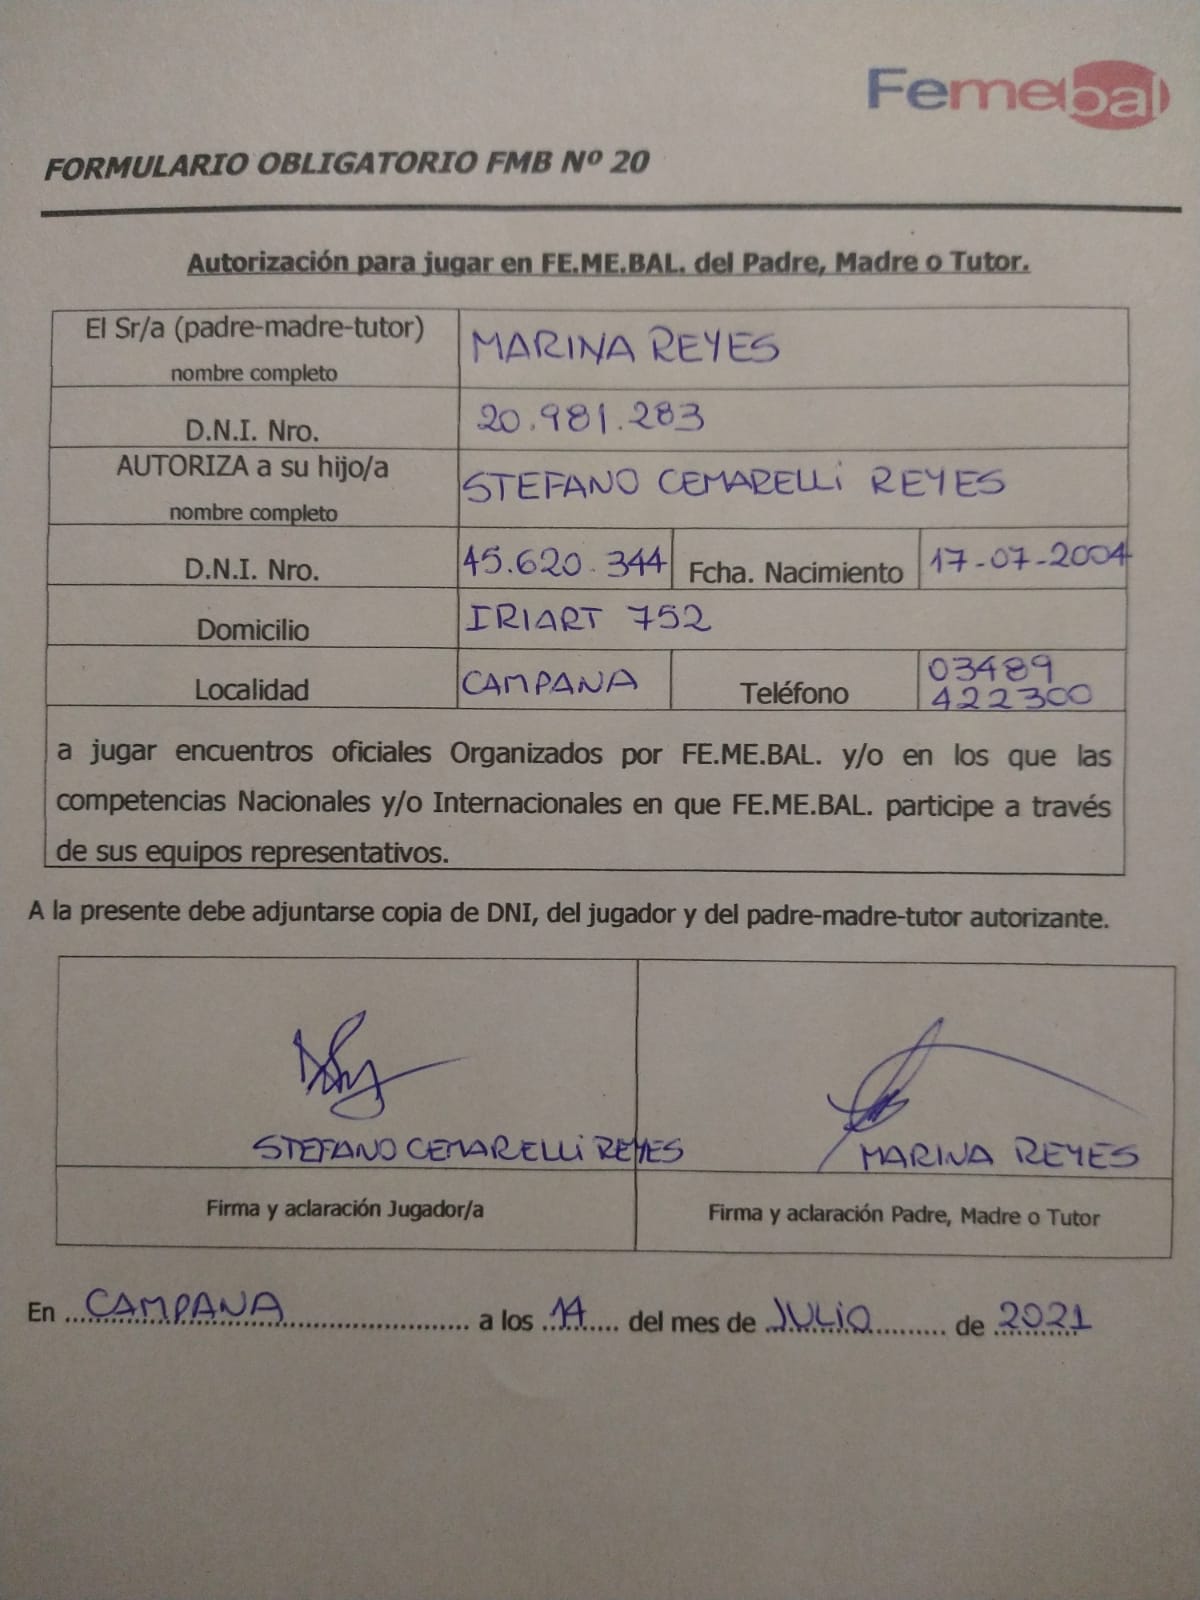 Femebal
FORMULARIO OBLIGATORIO FMB Nº 20
Autorización para jugar en FE.ME.BAL. del Padre, Madre o Tutor.
El Sr/a (padre-madre-tutor)
nombre completo
MARINA REYES
D.N.I. Nro.
20.981.283
AUTORIZA a su hijo/a
nombre completo
STEFANO CEMARELLi REYES
D.N.I. Nro.
45.620.344
Fcha. Nacimiento
17-07-2004
Domicilio
IRIART 752
Localidad
CAMPANA
Teléfono
03489
422300
a jugar encuentros oficiales Organizados por FE.ME.BAL. y/o en los que las
competencias Nacionales y/o Internacionales en que FE.ME.BAL. participe a través
de sus equipos representativos.
A la presente debe adjuntarse copia de DNI, del jugador y del padre-madre-tutor autorizante.
STEFANO CEMARELLi REYES
MARINA REYES
Firma y aclaración Jugador/a
Firma y aclaración Padre, Madre o Tutor
En CAMPANA a los 14 del mes de JULiO de 2021